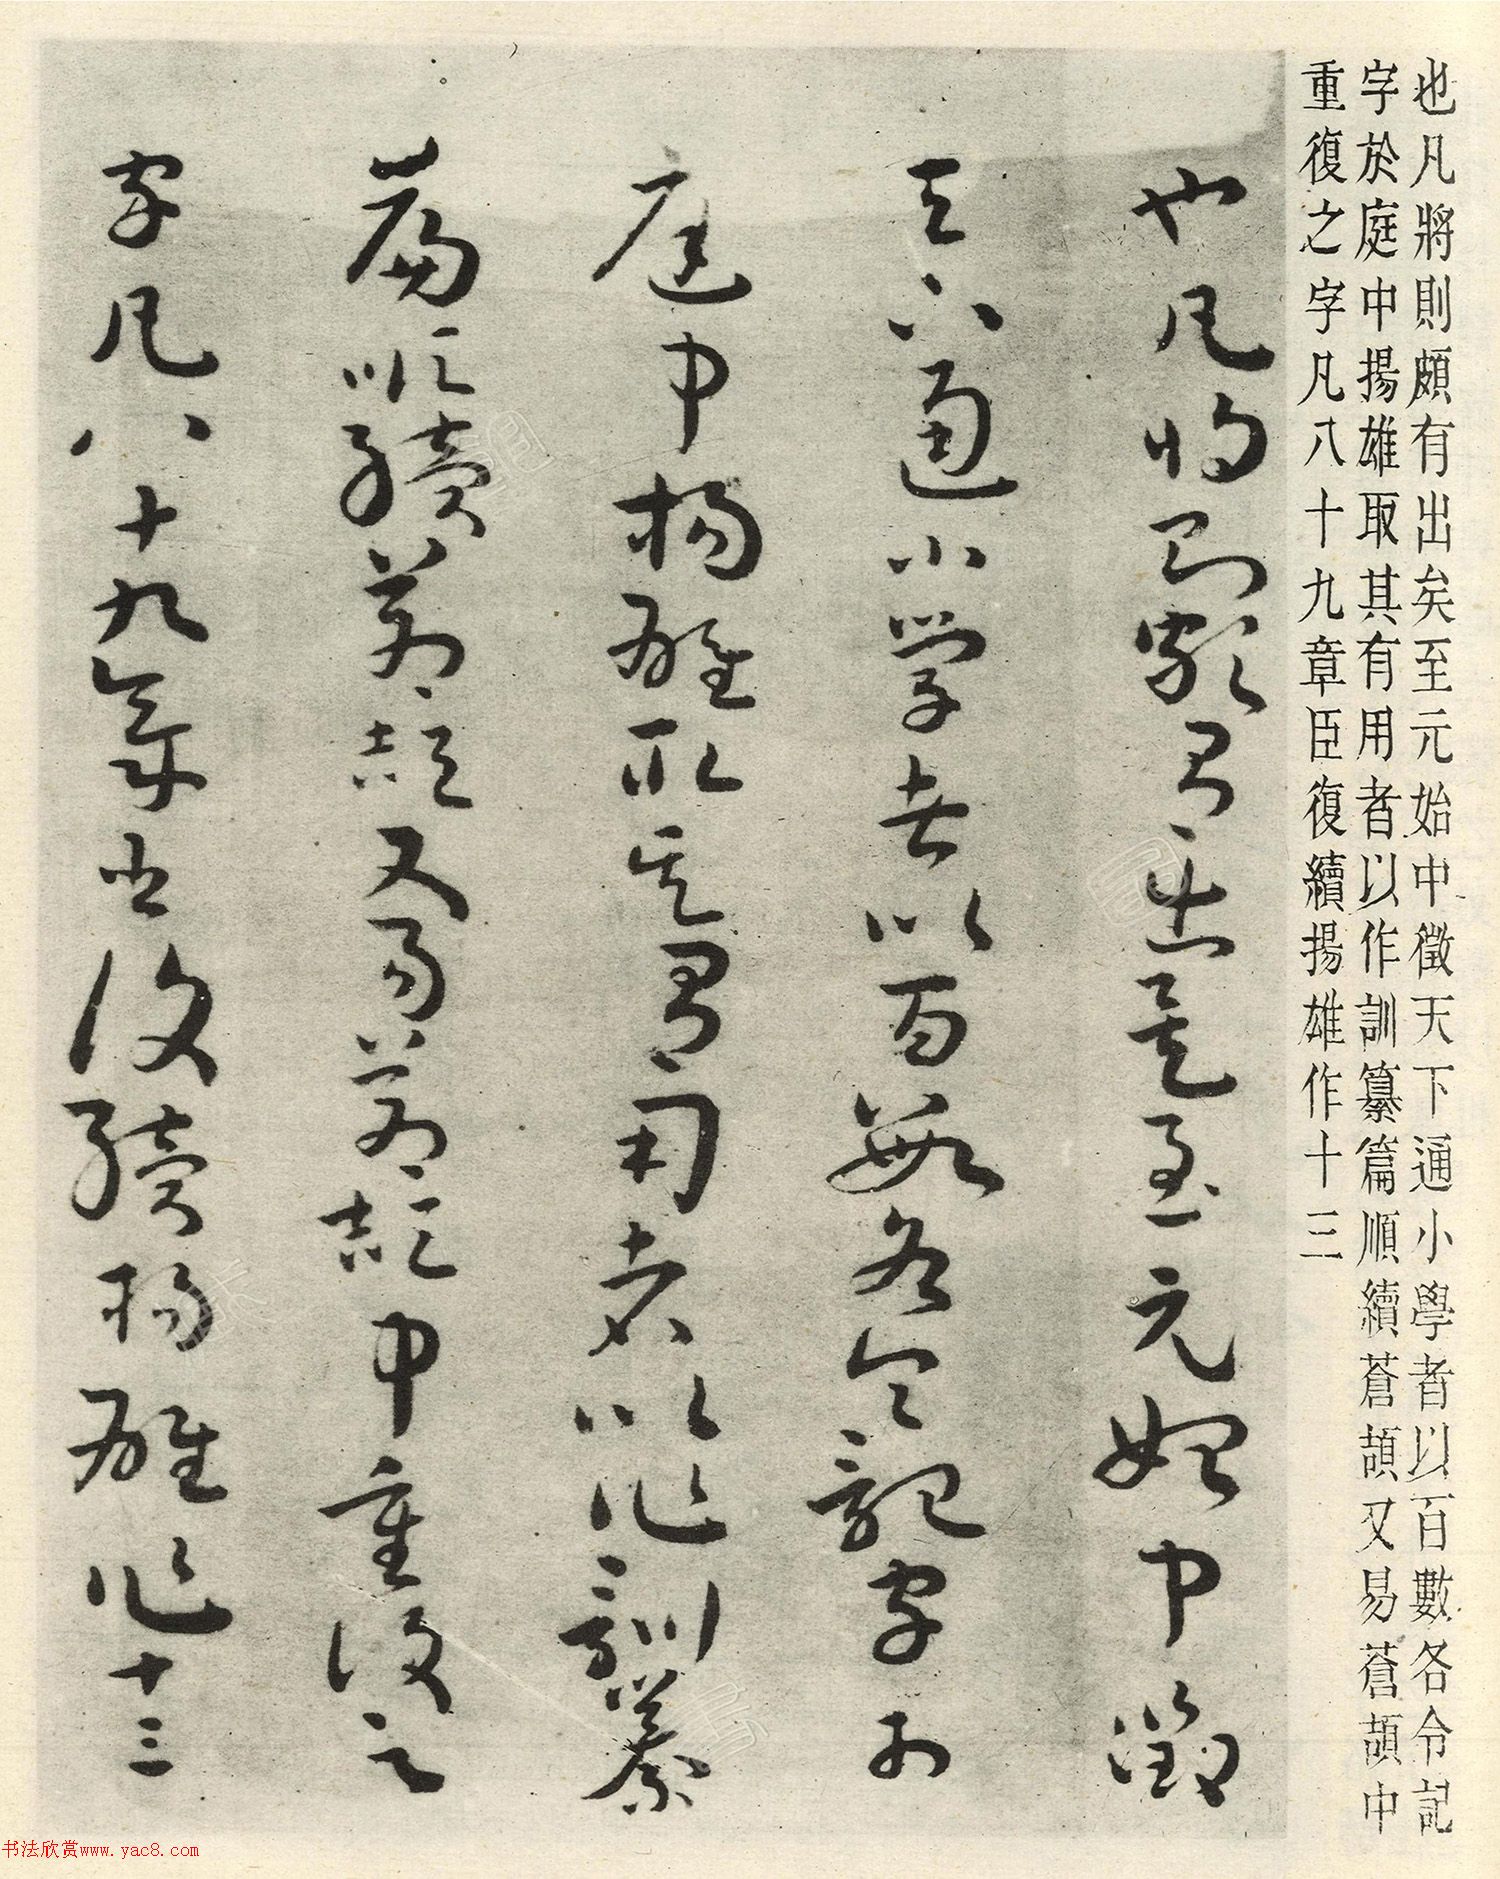 也凡將則頗有出矣至元始中徵天下通小學者以百數各令記
字於庭中揚雄取其有用者以作訓纂篇順續蒼頡又易蒼頡中
重復之字凡八十九章臣復續揚雄作十三
也凡將則頗有出矣至元始中徵
天下通小學者以百數各令記字於
庭中揚雄取其有用者以作訓纂
篇順續蒼頡又易蒼頡中重復之
字凡八十九章臣復續揚雄作十三
书法欣赏www.yac8.com